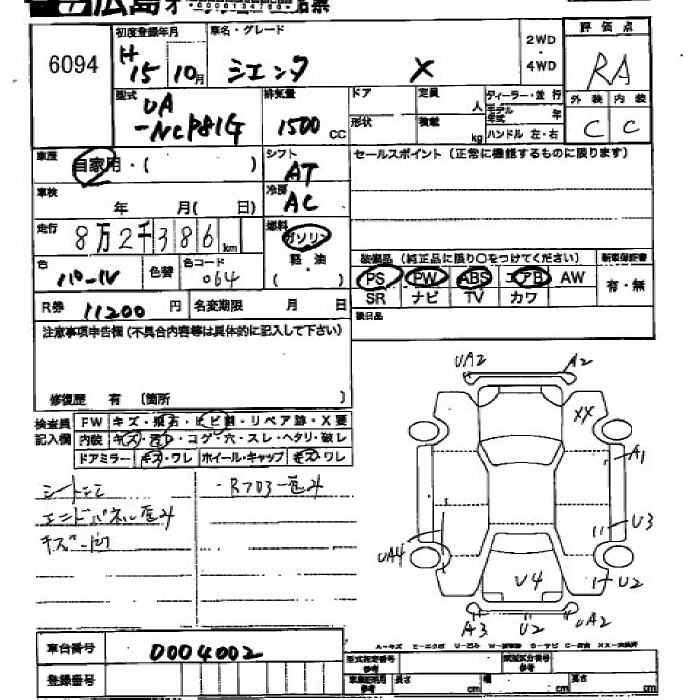 広島
6094
初度登録年月
H15 10月
車名・グレード
シエンタ X
2WD
・
4WD
評価点
RA
外装 内装
C C
型式
UA
-NCP81G
排気量
1500 CC
ドア
形状
定員 人
積載 kg
ディーラー・並行
モデル年式 年
ハンドル 左・右
車歴
自家用・( )
シフト
AT
冷房
AC
セールスポイント(正常に機能するものに限ります)
車検
年 月( 日)
走行
8万2千386km
燃料
ガソリン
軽油
( )
装備品(純正品に限り○をつけてください)
新車保証書
PS PW ABS エアB AW
SR ナビ TV カワ
有・無
色
パール
色替
色コード
064
R券 11200円
名変期限 月 日
後日品
注意事項申告欄(不具合内容等は具体的に記入して下さい)
修復歴 有 (箇所 )
検査員
記入欄
FW キズ・飛石・ヒビ割・リペア跡・X要
内装 キズ・汚レ・コゲ・穴・スレ・ヘタリ・破レ
ドアミラー キズ・ワレ ホイール・キャップ キズ・ワレ
エンドパネル
UA2 A2
XX
A1
U3
UA4
U4
U2
A3 U2 UA2
A-キズ E-エクボ U-凹ミ
S-サビ
車台番号 0004002
登録番号
型式指定番号
参考
類別区分番号
参考
長さ cm
幅 cm
cm